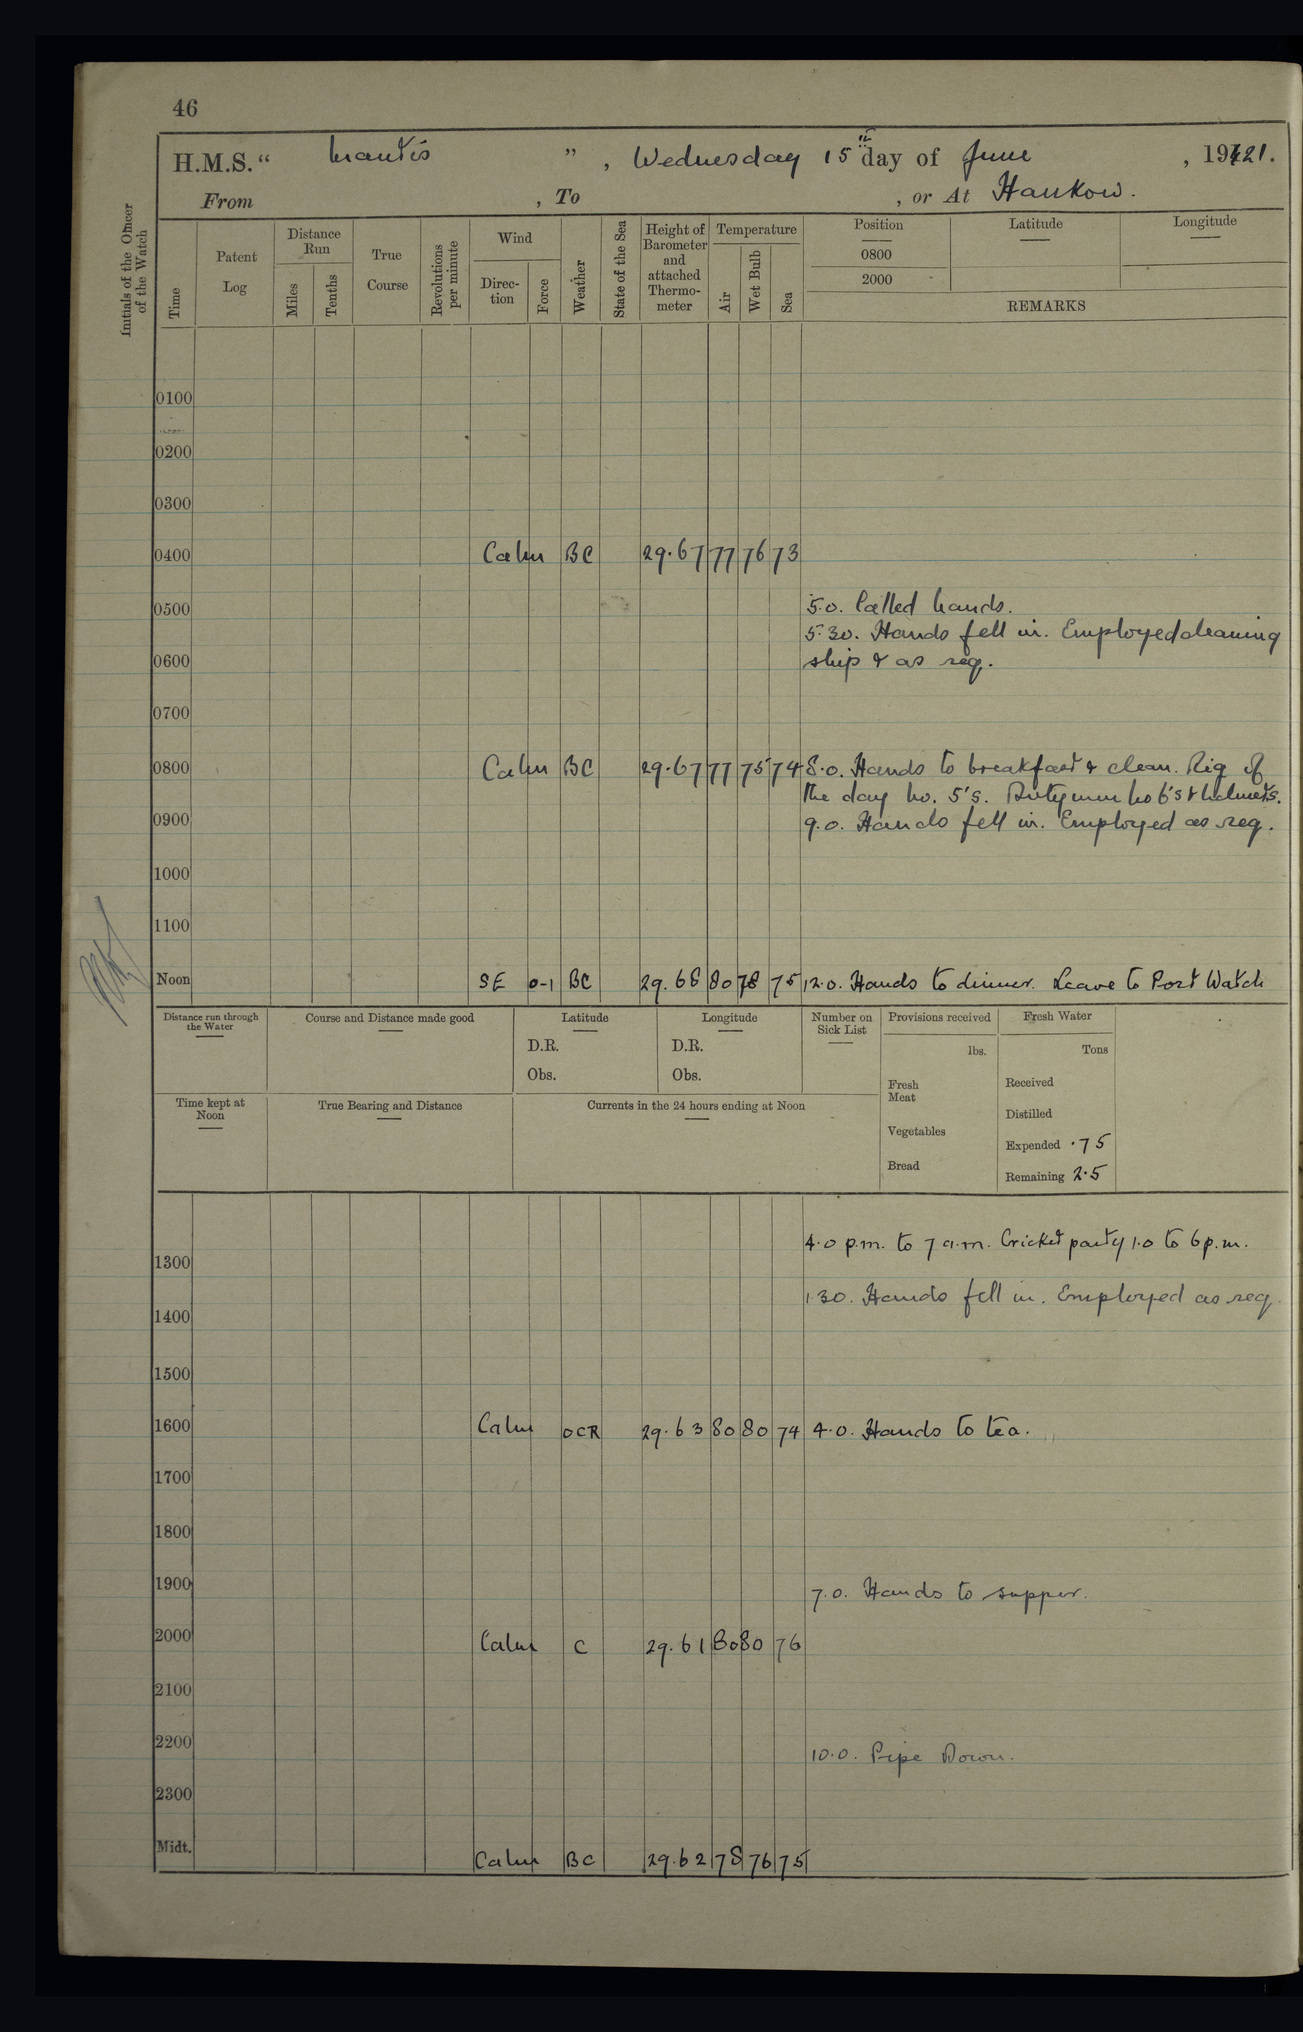 46
H.M.S. “ Mantis ” , Wednesday 15th day of June , 1921.
From , To , or At Hankow.
Initials of the Officer of the Watch
Time
Patent Log
Distance Run
Miles
Tenths
True Course
Revolutions per minute
Wind
Direc-tion
Force
Weather
State of the Sea
Height of Barometer and attached Thermo-meter
Temperature
Air
Wet Bulb
Sea
Position
0800
2000
Latitude
Longitude
REMARKS
0100
0200
0300
0400 Calm BC 29.67 77 76 73
0500 5.0. Called hands.
5.30. Hands fell in. Employed cleaning
0600 ship & as req.
0700
0800 Calm BC 29.67 77 75 74 8.0. Hands to breakfast & clean. Rig of
the day No. 5's. Dutymen No 6's & helmets.
0900 9.0. Hands fell in. Employed as req.
1000
1100
Noon SE 0-1 BC 29.68 80 78 75 12.0. Hands to dinner. Leave to Port Watch
Distance run through the Water
Course and Distance made good
Latitude
D.R.
Obs.
Longitude
D.R.
Obs.
Number on Sick List
Provisions received
lbs.
Fresh Meat
Vegetables
Bread
Fresh Water
Tons
Received
Distilled
Expended .75
Remaining 2.5
Time kept at Noon
True Bearing and Distance
Currents in the 24 hours ending at Noon
4.0 p.m. to 7 a.m. Cricket party 1.0 to 6 p.m.
1300
1.30. Hands fell in. Employed as req.
1400
1500
1600 Calm OCR 29.63 80 80 74 4.0. Hands to tea.
1700
1800
1900 7.0. Hands to supper.
2000 Calm C 29.61 80 80 76
2100
2200 10.0. Pipe Down.
2300
Midt. Calm BC 29.62 78 76 75